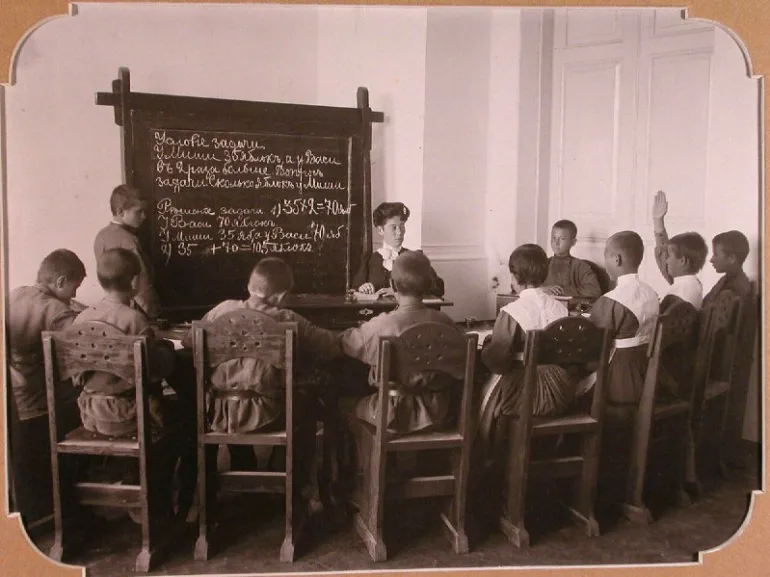 Условіе задачи.
У Миши 35 яблокъ, а у Васи
въ 2 раза больше. Вопросъ
задачи: Сколько яблокъ у Миши
Рѣшеніе задачи 1) 35×2=70
У Васи 70 яблокъ
У Миши 35 яб а у Васи 70 яб
2) 35 + 70 = 105 яблокъ.